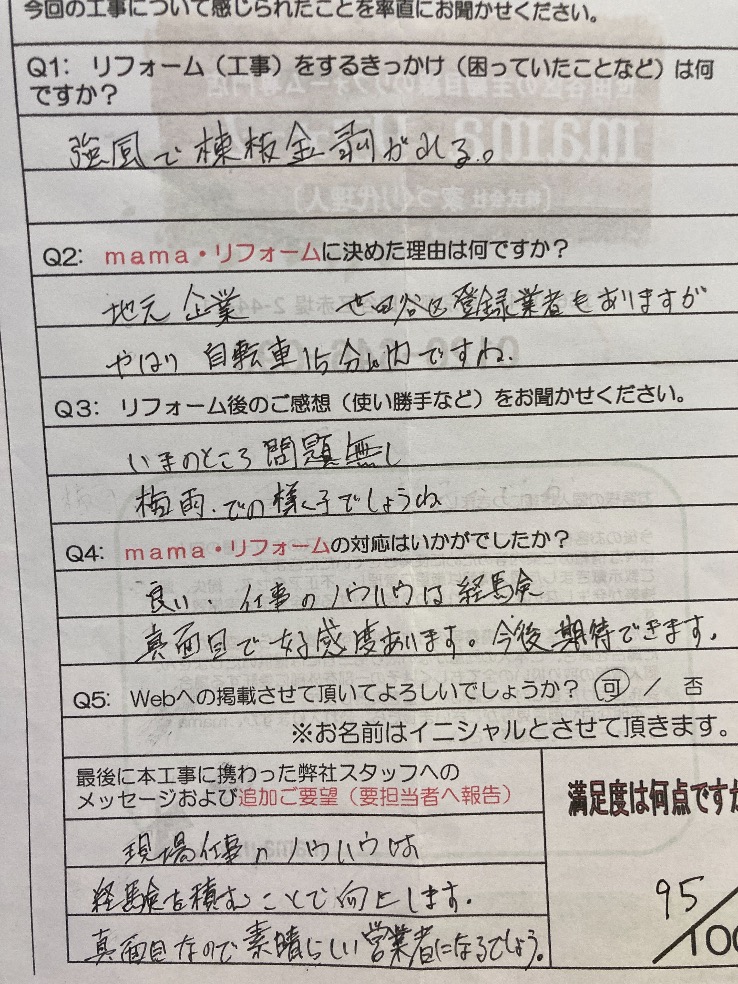 今回の工事について感じられたことを率直にお聞かせください。
Q1: リフォーム（工事）をするきっかけ（困っていたことなど）は何
ですか？
強風で棟板金剥がれる。
Q2: mama・リフォームに決めた理由は何ですか？
地元企業 世田谷区登録業者もありますが
やはり 自転車15分以内ですね.
Q3: リフォーム後のご感想（使い勝手など）をお聞かせください。
いまのところ問題無し
梅雨.での様子でしょうね
Q4: mama・リフォームの対応はいかがでしたか？
良い、仕事のノウハウは経験
真面目で好感度あります。今後期待できます.
Q5: Webへの掲載させて頂いてよろしいでしょうか？ 可 / 否
※お名前はイニシャルとさせて頂きます。
最後に本工事に携わった弊社スタッフへの
メッセージおよび追加ご要望（要担当者へ報告）
現場仕事のノウハウは
経験を積むことで向上します.
真面目なので素晴らしい営業者になるでしょう。
満足度は何点ですか
95/100